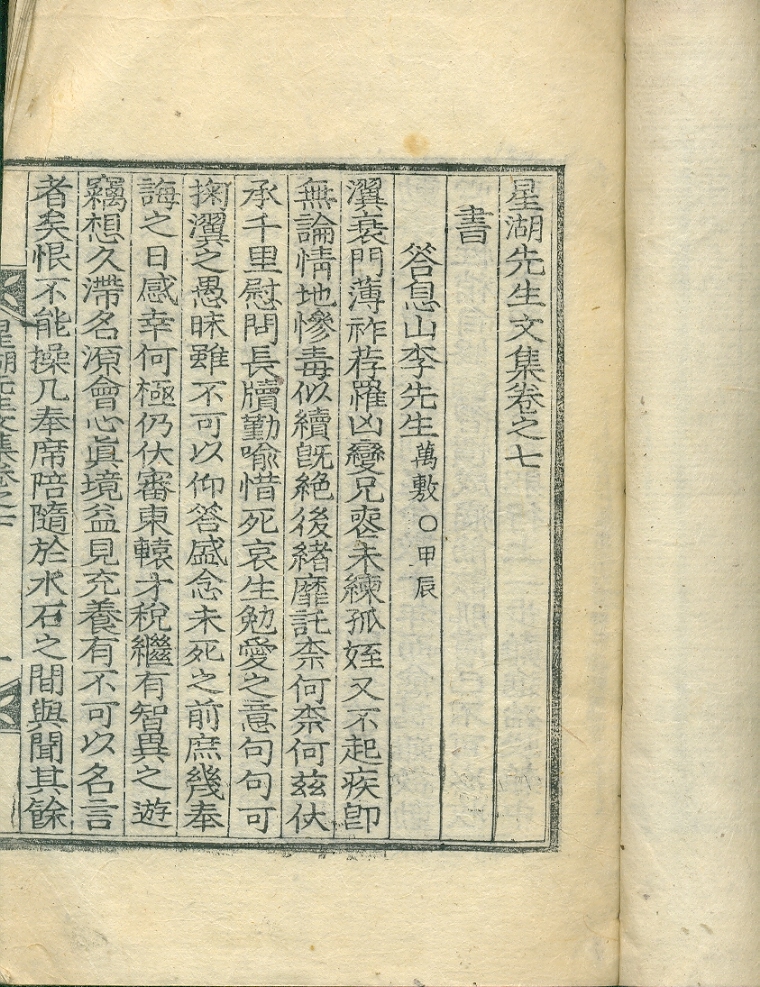 星湖先生文集卷之七
書
答息山李先生 萬敷○甲辰
瀷衰門薄祚荐罹凶變兄喪未練孤姪又不起疾卽
無論情地慘毒似續旣絶後緖靡託柰何柰何玆伏
承千里慰問長牘勤喩惜死哀生勉愛之意句句可
掬瀷之愚昧雖不可以仰答盛念未死之前庶幾奉
誨之日感幸何極仍伏審東轅才稅繼有智異之遊
竊想久滯名源會心眞境益見充養有不可以名言
者矣恨不能操几奉席陪隨於水石之間與聞其餘
星湖先生文集卷之七
一